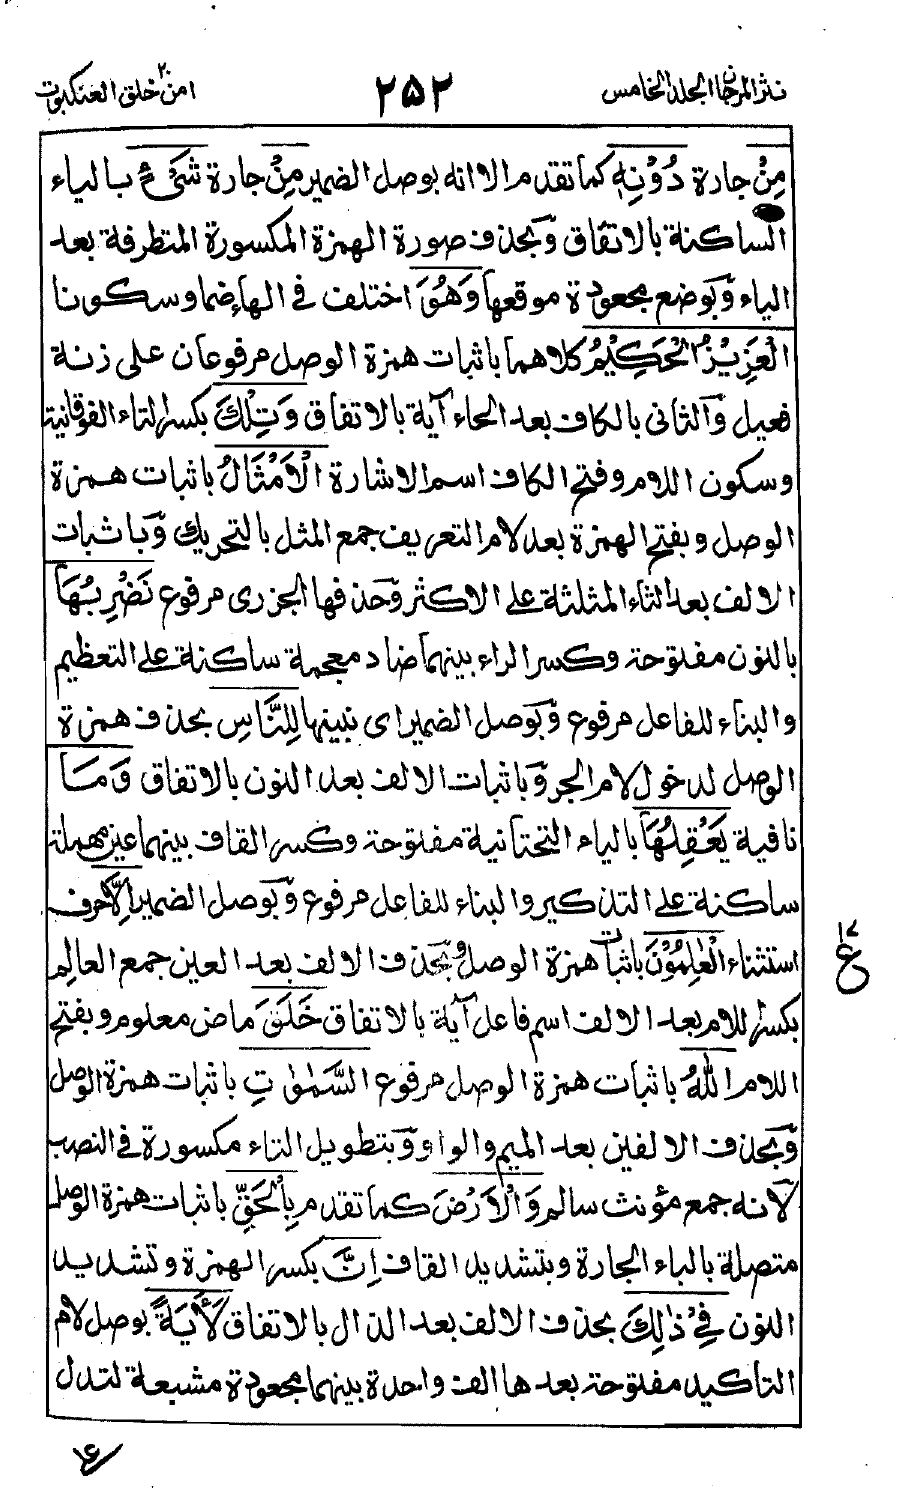 نثر المرجان الجلد الخامس
٢٥٢
امن خلق ٢٠ العنكبوت
مِنْ جارة دُوْنِهٖ كما تقدم الا انه بوصل الضمير مِنْ جارة شَیْءٍ بالياء
الساكنة بالاتفاق وبحذف صورة الهمزة المكسورة المتطرفة بعد
الياء وبوضع مجعودة موقعها وَهُوَ اختلف في الهاء ضما وسكونا
الْعَزِيْزُ الْحَكِيْمُ كلاهما باثبات همزة الوصل مرفوعان على زنة
فعيل والثانى بالكاف بعد الحاء آية بالاتفاق وَتِلْكَ بكسر التاء الفوقانية
وسكون اللام وفتح الكاف اسم الاشارة الْاَمْثَالُ باثبات همزة
الوصل وبفتح الهمزة بعد لام التعريف جمع المثل بالتحريك وباثبات
الالف بعد الثاء المثلثة على الاكثر وحذفها الجزرى مرفوع نَضْرِبُهَا
بالنون مفتوحة وكسر الراء بينهما ضاد معجمة ساكنة على التعظيم
والبناء للفاعل مرفوع وبوصل الضمير اى نبينها لِلنَّاسِ بحذف همزة
الوصل لدخول لام الجر وباثبات الالف بعد النون بالاتفاق وَمَا
نافية يَعْقِلُهَا بالياء التحتانية مفتوحة وكسر القاف بينهما عين مهملة
ساكنة على التذكير والبناء للفاعل مرفوع وبوصل الضمير اِلَّا حرف
استثناء الْعٰلِمُوْنَ باثبات همزة الوصل وبحذف الالف بعد العين جمع العالِم
بكسر اللام بعد الالف اسم فاعل آية بالاتفاق خَلَقَ ماض معلوم وبفتح
اللام اللّٰهُ باثبات همزة الوصل مرفوع السَّمٰوٰتِ باثبات همزة الوصل
وبحذف الالفين بعد الميم والواو وبتطويل التاء مكسورة فى النصب
لانه جمع مؤنث سالم وَالْاَرْضَ كما تقدم بِالْحَقِّ باثبات همزة الوصل
متصلة بالباء الجارة وبتشديد القاف اِنَّ بكسر الهمزة وتشديد
النون فِيْ ذٰلِكَ بحذف الالف بعد الذال بالاتفاق لَاٰيَةً بوصل لام
التأكيد مفتوحة بعدها الف واحدة بينهما مجعودة مشبعة لتدل
١٦
ع